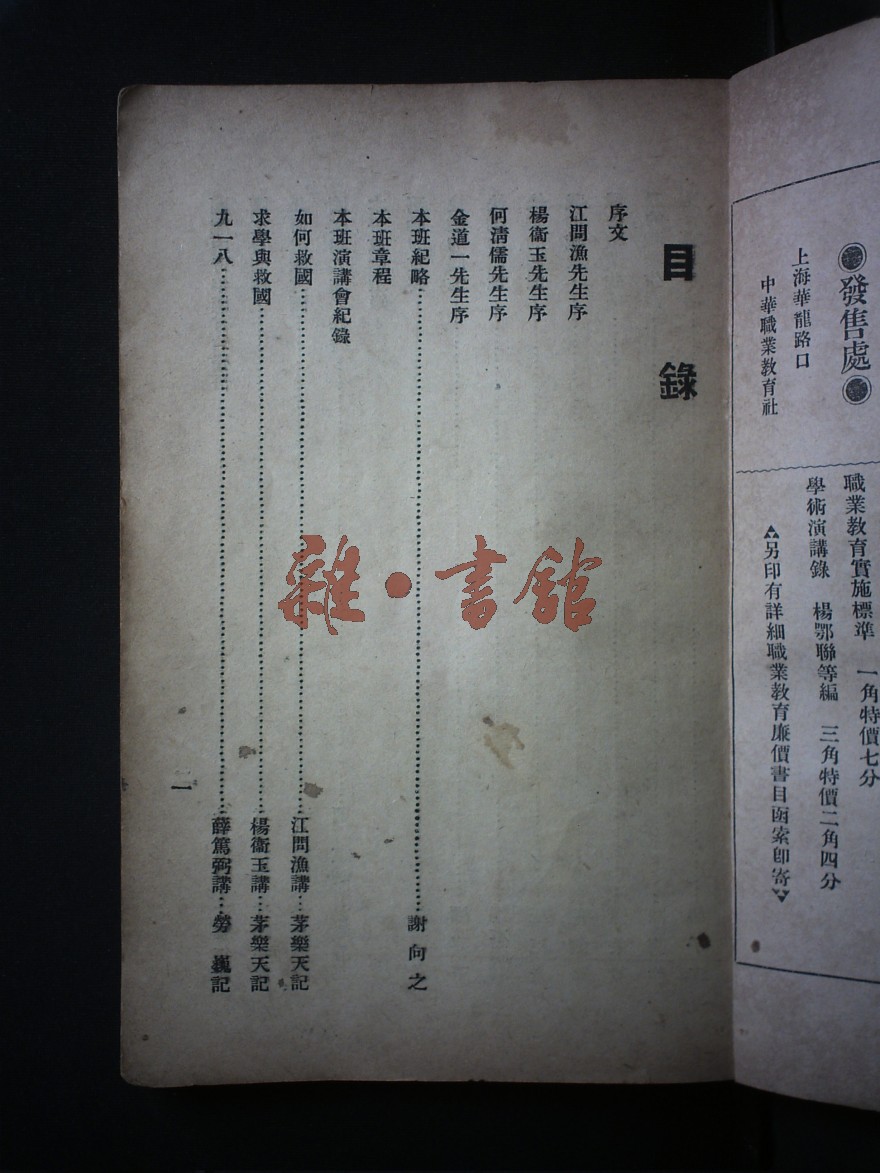 ●發售處●
上海華龍路口
中華職業教育社
職業教育實施標準　一角特價七分
學術演講錄　楊鄂聯等編　三角特價二角四分
另印有詳細職業教育廉價書目函索即寄
目錄
序文
江問漁先生序
楊衞玉先生序
何清儒先生序
金道一先生序
本班紀略……謝向之
本班章程
本班演講會紀錄
如何救國……江問漁講…茅樂天記
求學與救國……楊衞玉講…茅樂天記
九一八……薛篤弼講…勞　巍記
一
雜·書館